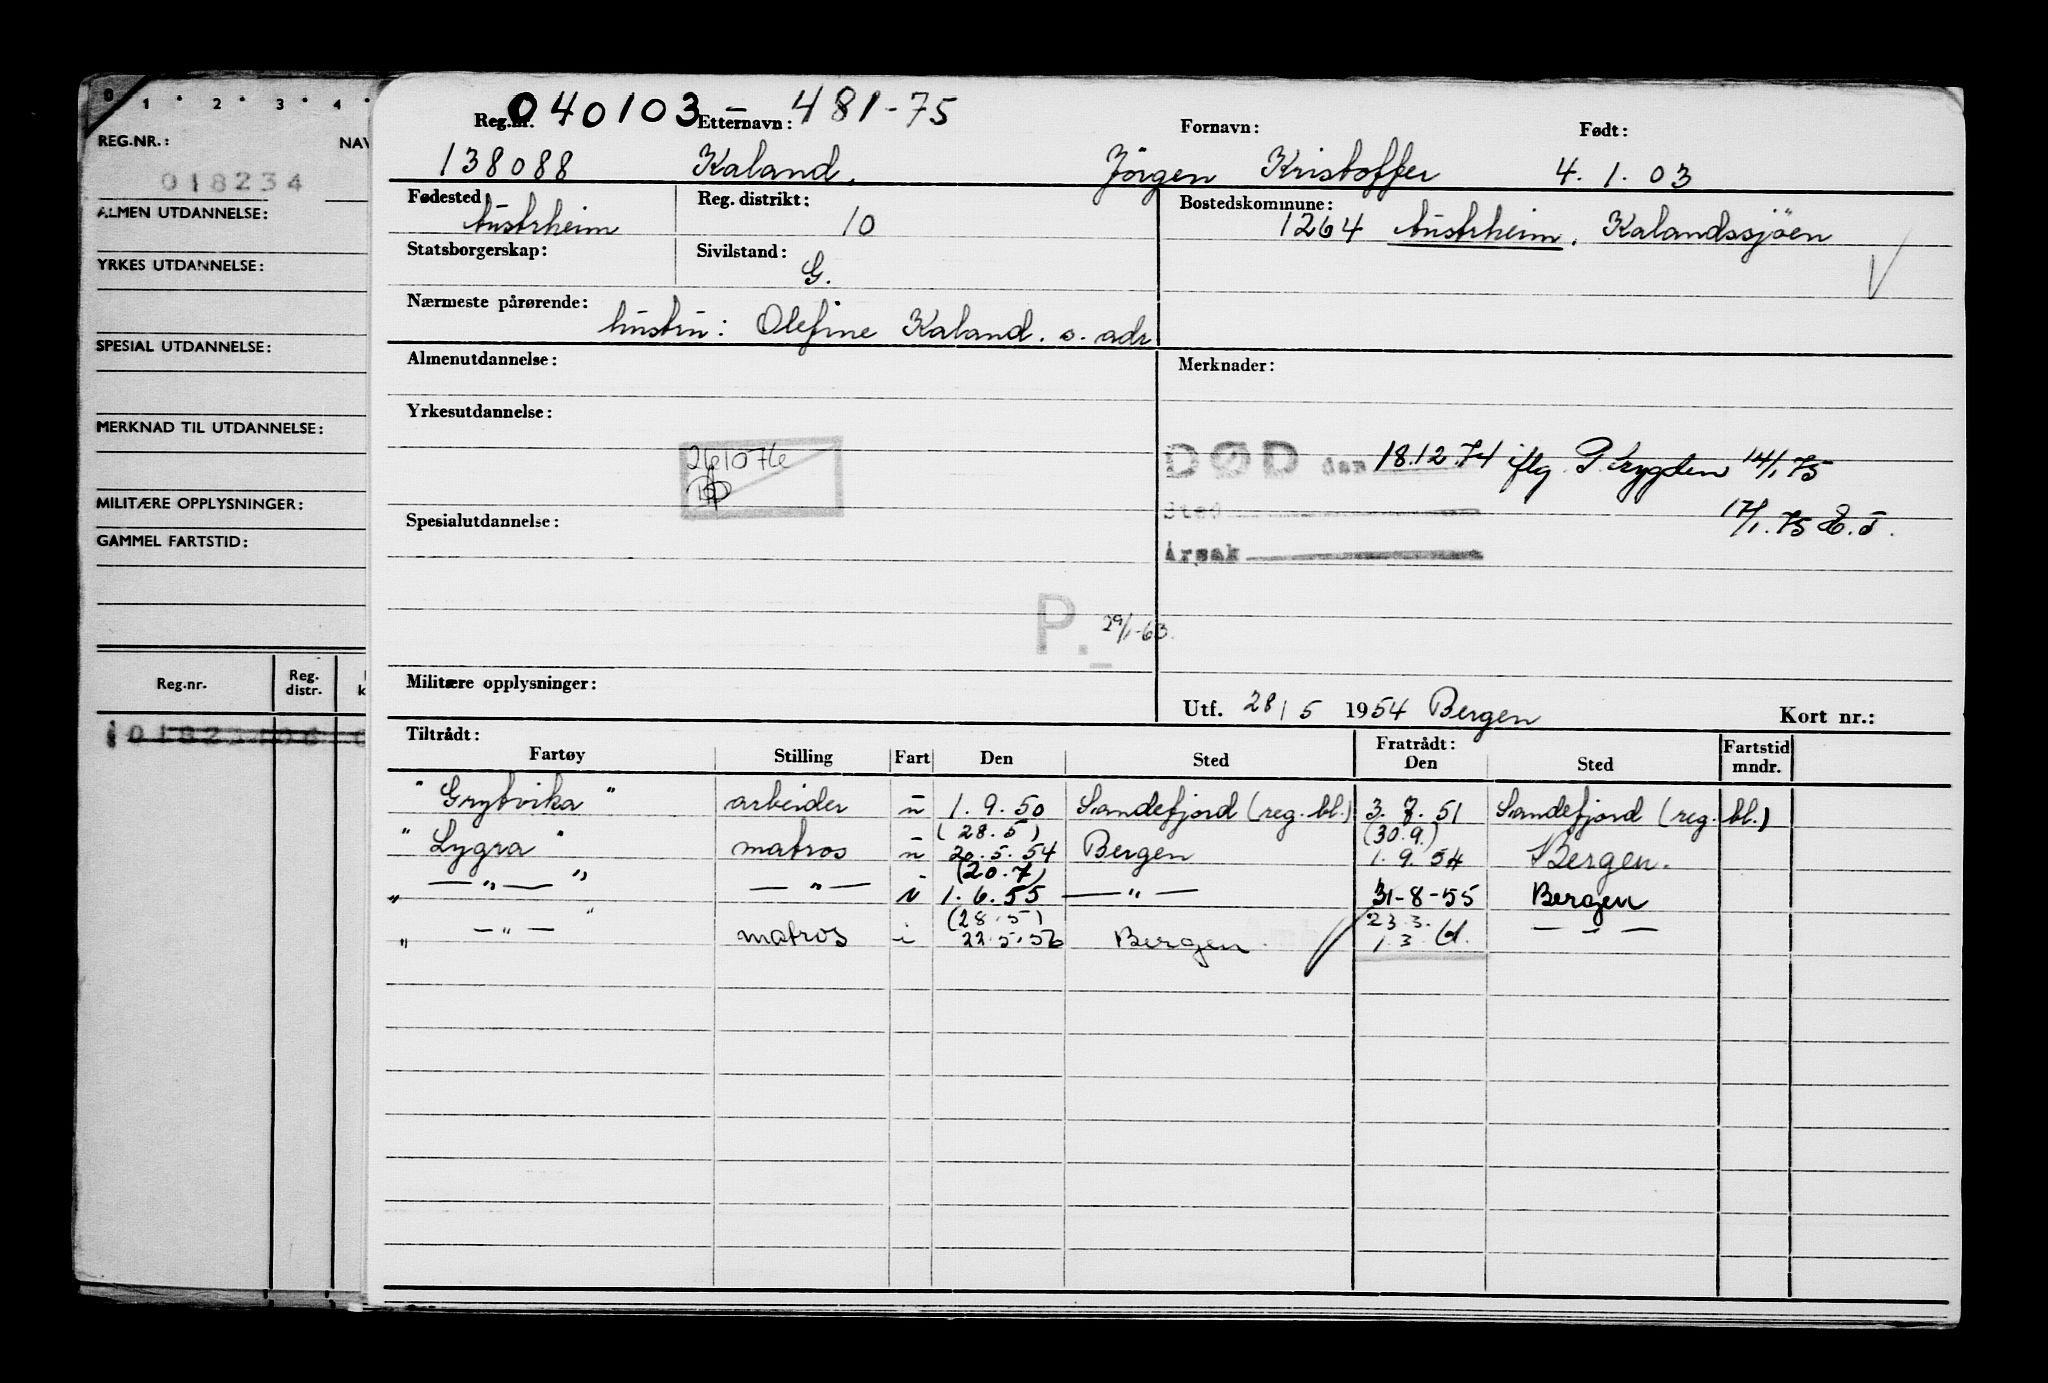 0 1 2 3 4
REG.NR.: NAV
018234
ALMEN UTDANNELSE:
YRKES UTDANNELSE:
SPESIAL UTDANNELSE:
MERKNAD TIL UTDANNELSE:
MILITÆRE OPPLYSNINGER:
GAMMEL FARTSTID:
Reg.nr. Reg. distr. k
040103 - 481-75
Reg.nr. Etternavn: Fornavn: Født:
138088 Kaland. Jörgen Kristoffer 4. 1. 03
Fødested: Reg. distrikt: Bostedskommune:
Austrheim 10 1264 Austrheim, Kalandssjöen
Statsborgerskap: Sivilstand:
G.
Nærmeste pårørende:
hustru: Olefine Kaland. s. adr
Almenutdannelse: Merknader:
Yrkesutdannelse:
261076
DØD den 18.12.74 iflg. P. Trygden 14/1.75
Spesialutdannelse: Sted 17/1.75 E.T.
Årsak
P. 29/1-63.
Militære opplysninger:
Utf. 28/5 1954 Bergen Kort nr.:
Tiltrådt: Fratrådt: Fartstid
Fartøy Stilling Fart Den Sted Den Sted mndr.
"Grytvika" arbeider u 1. 9. 50 Sandefjord (reg. bl.) 3. 7. 51 Sandefjord (reg. bl.)
(28.5) (30.9.)
"Lygra" matros u 20.5.54 Bergen 1. 9. 54 Bergen.
(20.7)
" — " — " — " — i 1.6.55 — " — 31-8-55 Bergen
(28.5) 23.3.
" — " — " matros i 22.5.56 Bergen. 1.3.61. — " —